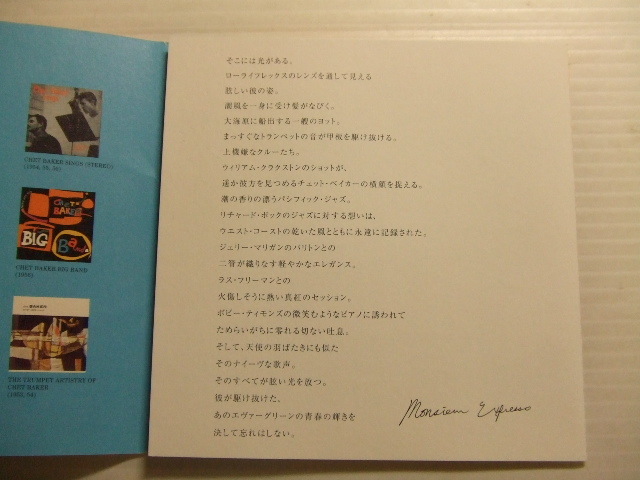 CHET BAKER SINGS (STEREO)
(1954, 56, 56)
CHET BAKER
BIG Band
CHET BAKER BIG BAND
(1956)
THE TRUMPET ARTISTRY OF
CHET BAKER
(1953, 54)
そこには光がある。
ローライフレックスのレンズを通して見える
眩しい彼の姿。
潮風を一身に受け髪がなびく。
大海原に船出する一艘のヨット。
まっすぐなトランペットの音が甲板を駆け抜ける。
上機嫌なクルーたち。
ウィリアム・クラクストンのショットが、
遥か彼方を見つめるチェット・ベイカーの横顔を捉える。
潮の香りの漂うパシフィック・ジャズ。
リチャード・ボックのジャズに対する想いは、
ウエスト・コーストの乾いた風とともに永遠に記録された。
ジェリー・マリガンのバリトンとの
二管が織りなす軽やかなエレガンス。
ラス・フリーマンとの
火傷しそうに熱い真紅のセッション。
ボビー・ティモンズの微笑むようなピアノに誘われて
ためらいがちに零れる切ない吐息。
そして、天使の羽ばたきにも似た
そのナイーヴな歌声。
そのすべてが眩い光を放つ。
彼が駆け抜けた、
あのエヴァーグリーンの青春の輝きを
決して忘れはしない。
Monsieur Espresso